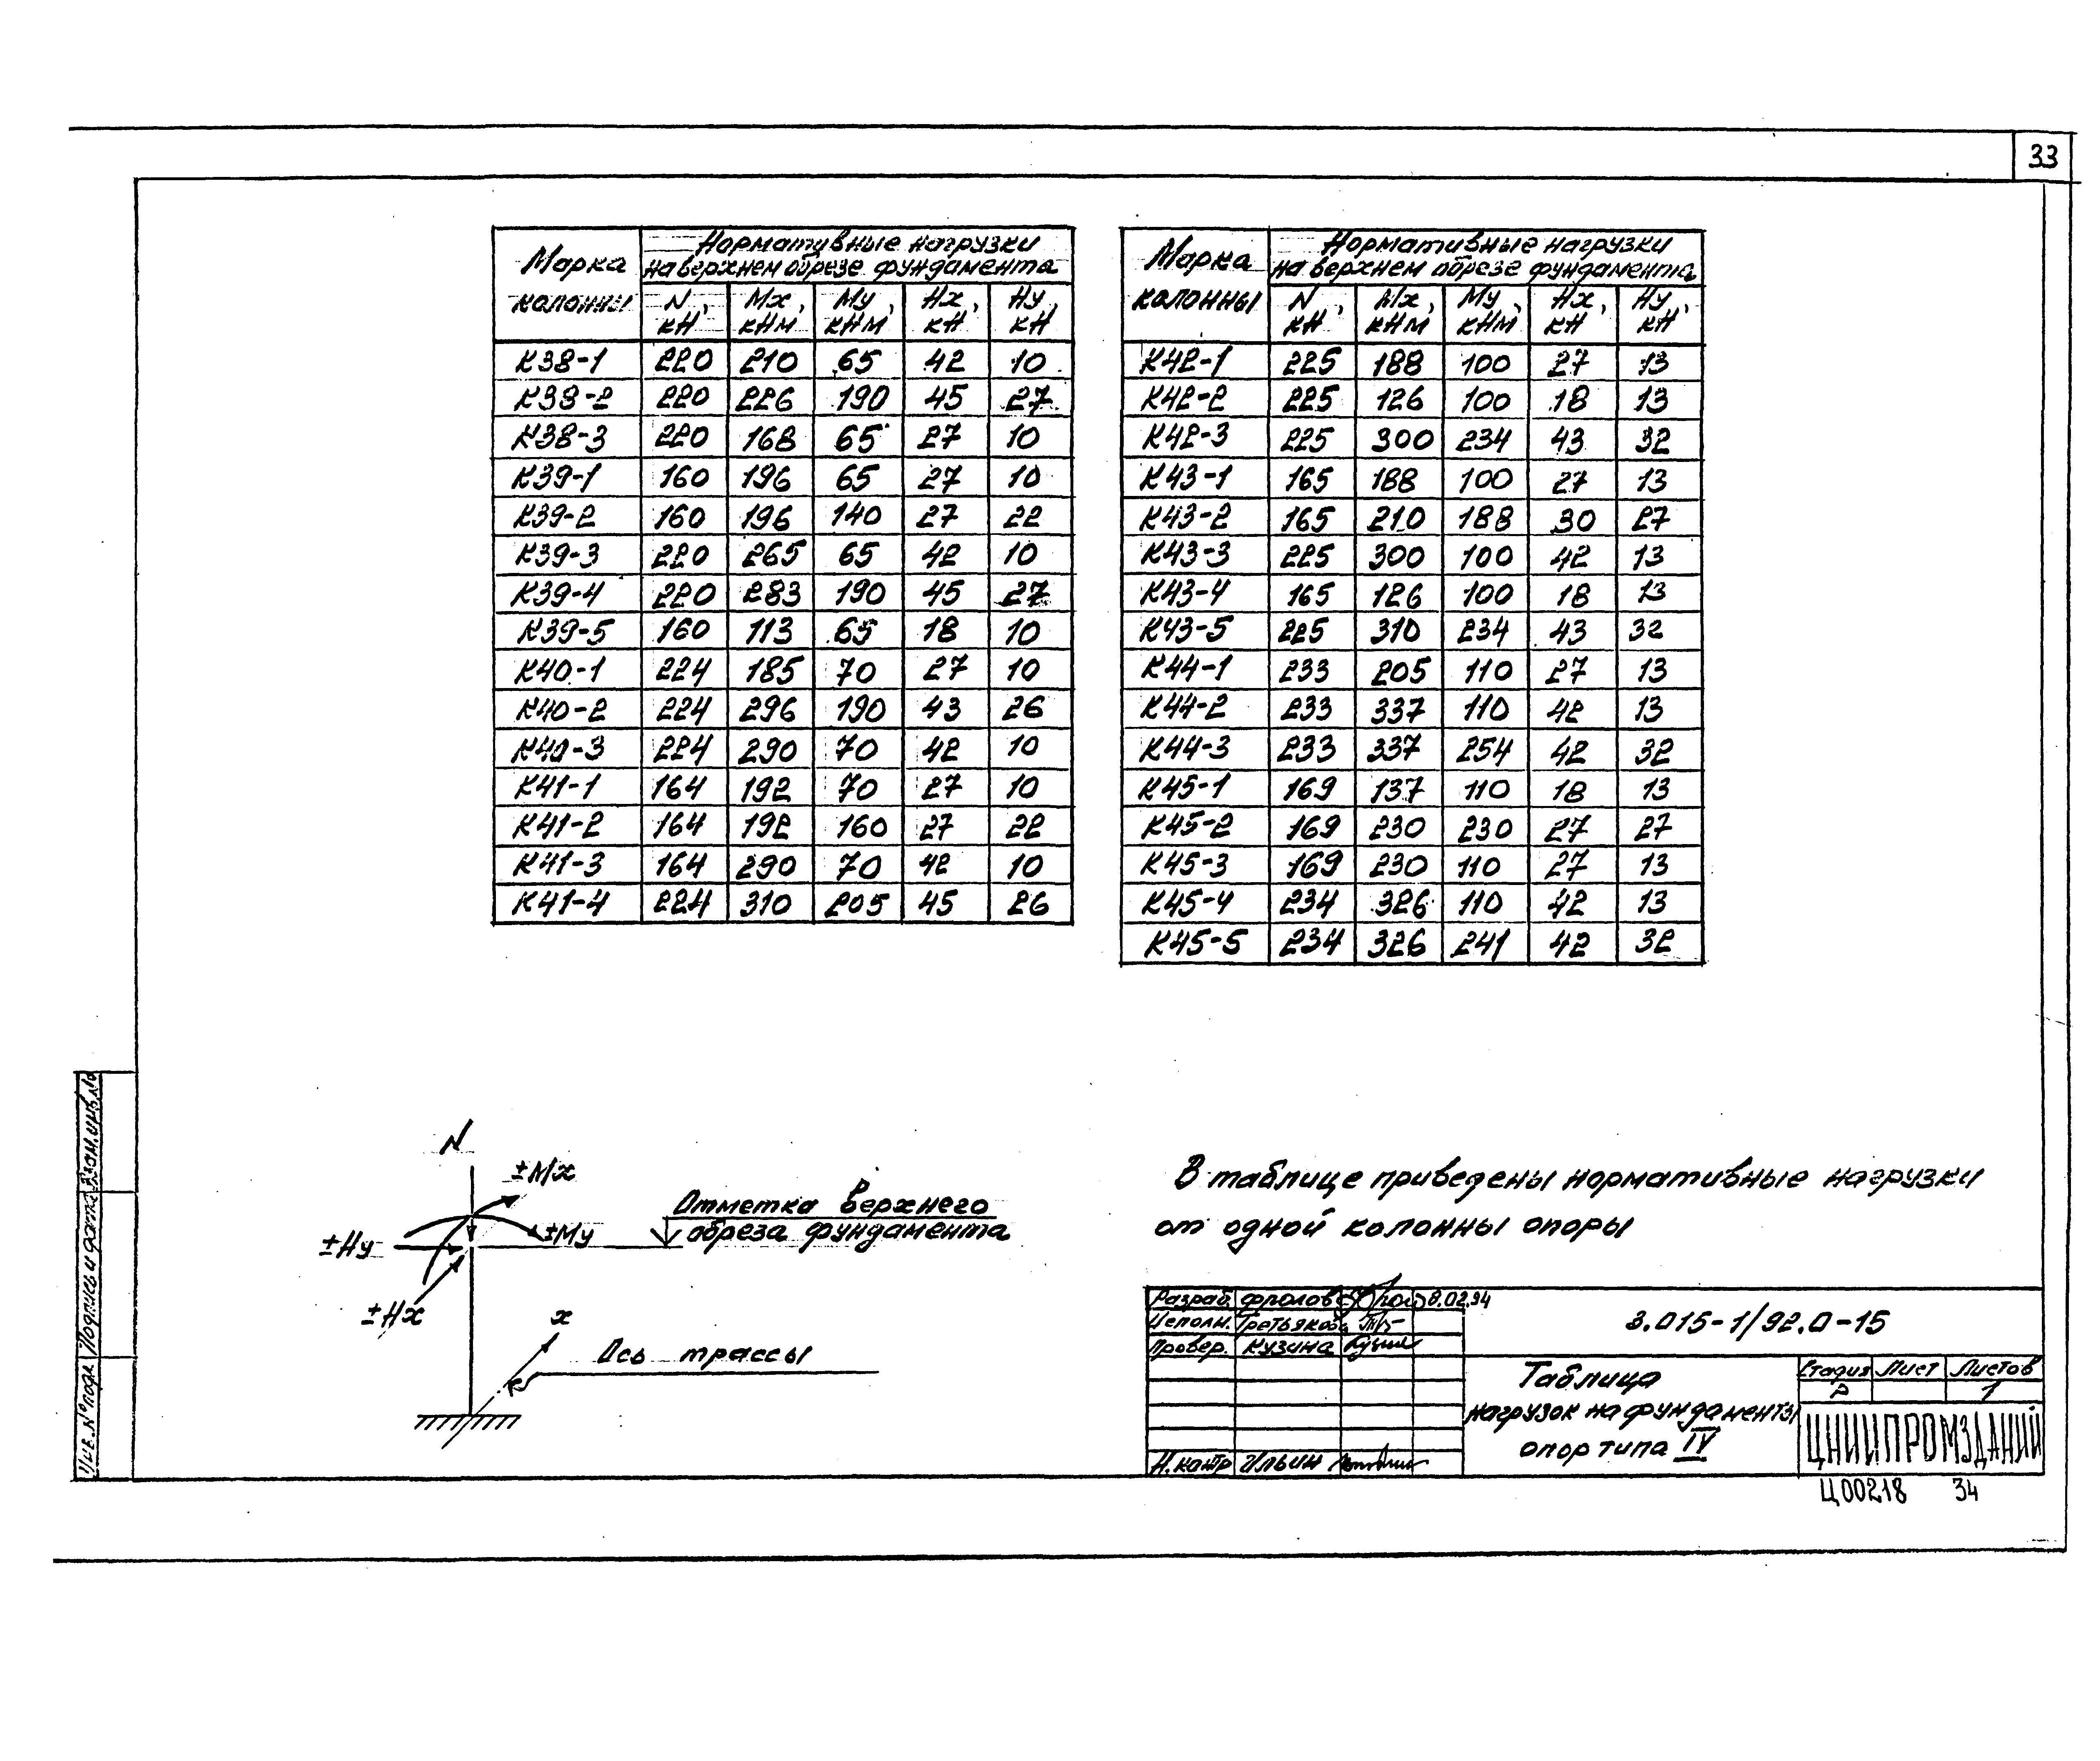 33
Марка колонны | Нормативные нагрузки на верхнем обрезе фундамента
N, кН | Mx, кНм | My, кНм | Hx, кН | Hy, кН
К38-1 220 210 65 42 10
К38-2 220 226 190 45 27
К38-3 220 168 65 27 10
К39-1 160 196 65 27 10
К39-2 160 196 140 27 22
К39-3 220 265 65 42 10
К39-4 220 283 190 45 27
К39-5 160 113 65 18 10
К40-1 224 185 70 27 10
К40-2 224 296 190 43 26
К40-3 224 290 70 42 10
К41-1 164 192 70 27 10
К41-2 164 192 160 27 22
К41-3 164 290 70 42 10
К41-4 224 310 205 45 26
Марка колонны | Нормативные нагрузки на верхнем обрезе фундамента
N, кН | Mx, кНм | My, кНм | Hx, кН | Hy, кН
К42-1 225 188 100 27 13
К42-2 225 126 100 18 13
К42-3 225 300 234 43 32
К43-1 165 188 100 27 13
К43-2 165 210 188 30 27
К43-3 225 300 100 42 13
К43-4 165 126 100 18 13
К43-5 225 310 234 43 32
К44-1 233 205 110 27 13
К44-2 233 337 110 42 13
К44-3 233 337 254 42 32
К45-1 169 137 110 18 13
К45-2 169 230 230 27 27
К45-3 169 230 110 27 13
К45-4 234 326 110 42 13
К45-5 234 326 241 42 32
N
±Mx
±My
±Hy
±Hx
Отметка верхнего
обреза фундамента
x
Ось трассы
В таблице приведены нормативные нагрузки
от одной колонны опоры
Разраб. Фролов 8.02.94
Исполн. Третьякова
Провер. Кузина
Н.контр Ильин
3.015-1/92.0-15
Таблица
нагрузок на фундаменты
опор типа IV
Стадия Лист Листов
Р 1
ЦНИИПРОМЗДАНИЙ
Ц00218 34
Инв.№ подл. Подпись и дата Взам.инв.№